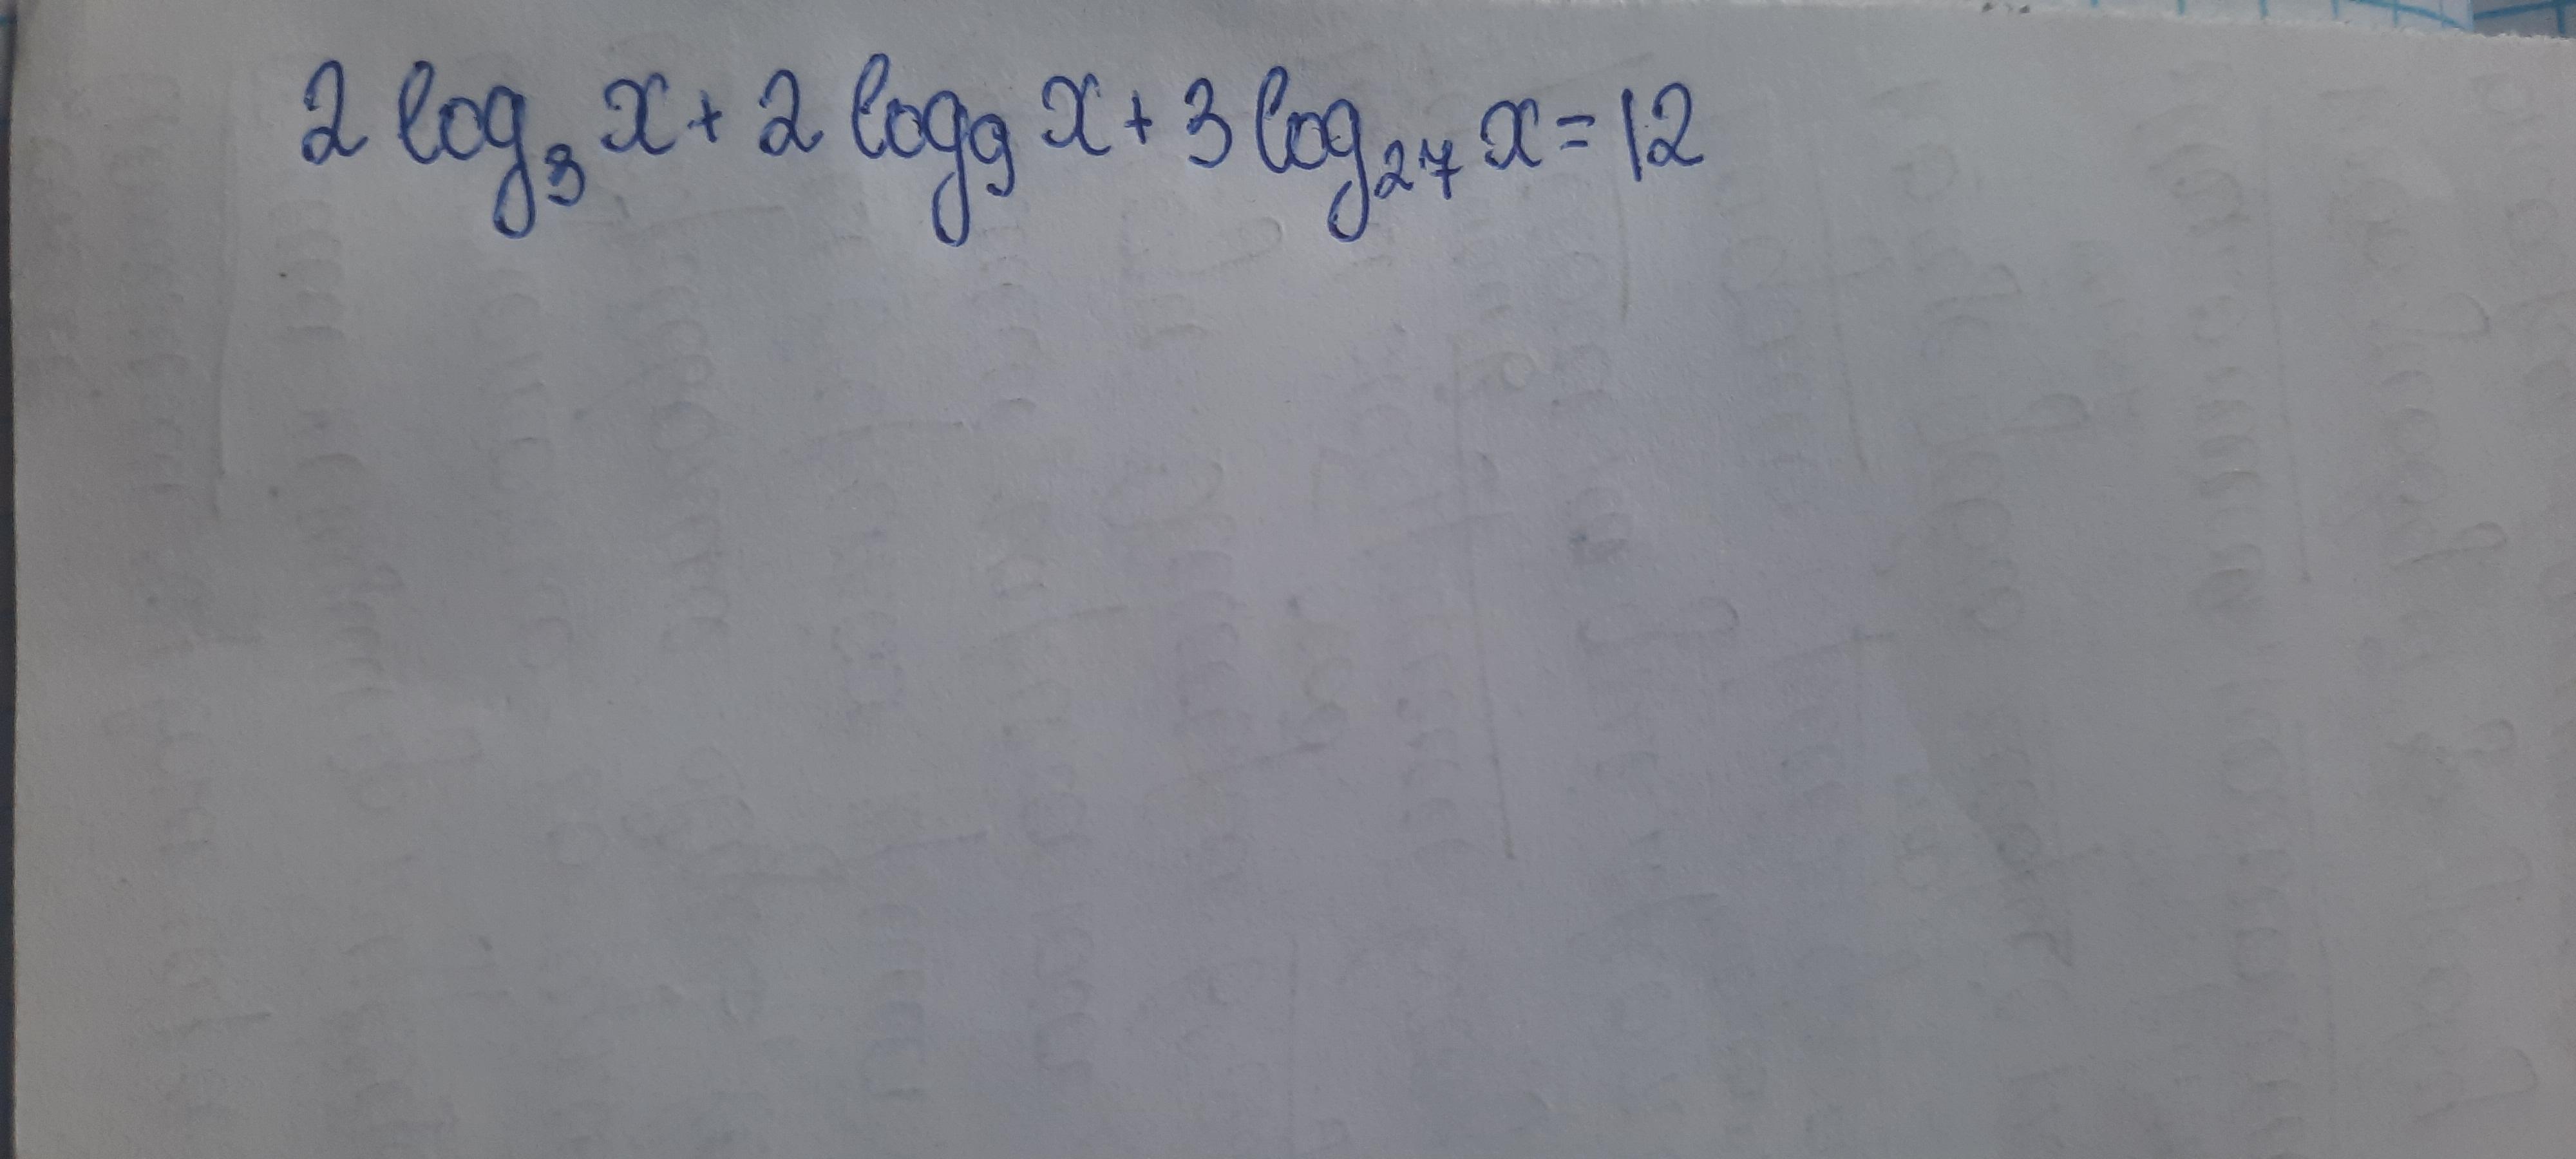 2 log₃ x + 2 log₉ x + 3 log₂₇ x = 12